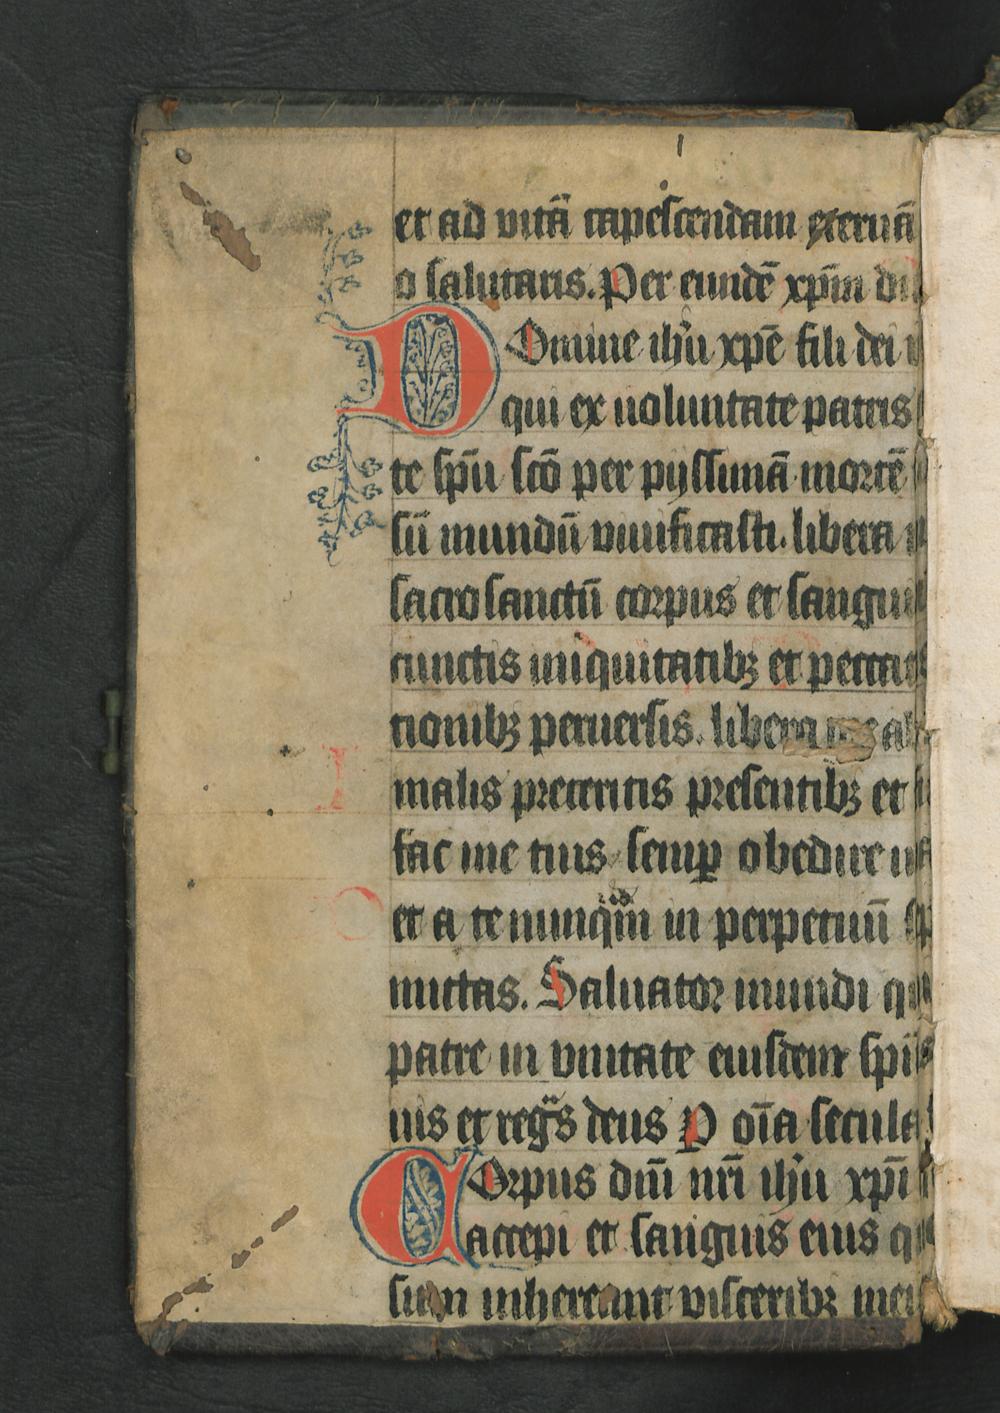 et ad vitā capescendam eternā
o salutaris. Per eundē xp̄m dn
Domine ih̄u xpē fili dei
qui ex uoluntate patris
te sp̄u sc̄o per pyssimā mortē
sū mundū viuificasti. libera
sacrosanctū corpus et sangui
cunctis iniquitatibꝫ et peccat
tionibꝫ peruersis. libera me ab
malis preteritis presentibꝫ et
fac me tuis semꝑ obedire
et a te nunqͥm in perpetuū
mittas. Saluator mundi qu
patre in vnitate eiusdem sp̄
uis et regͣs deus P oīa secula
Corpus dn̄i nr̄i ih̄u xp̄i
accepi et sanguis eius q
sum inhereant visceribꝫ mei